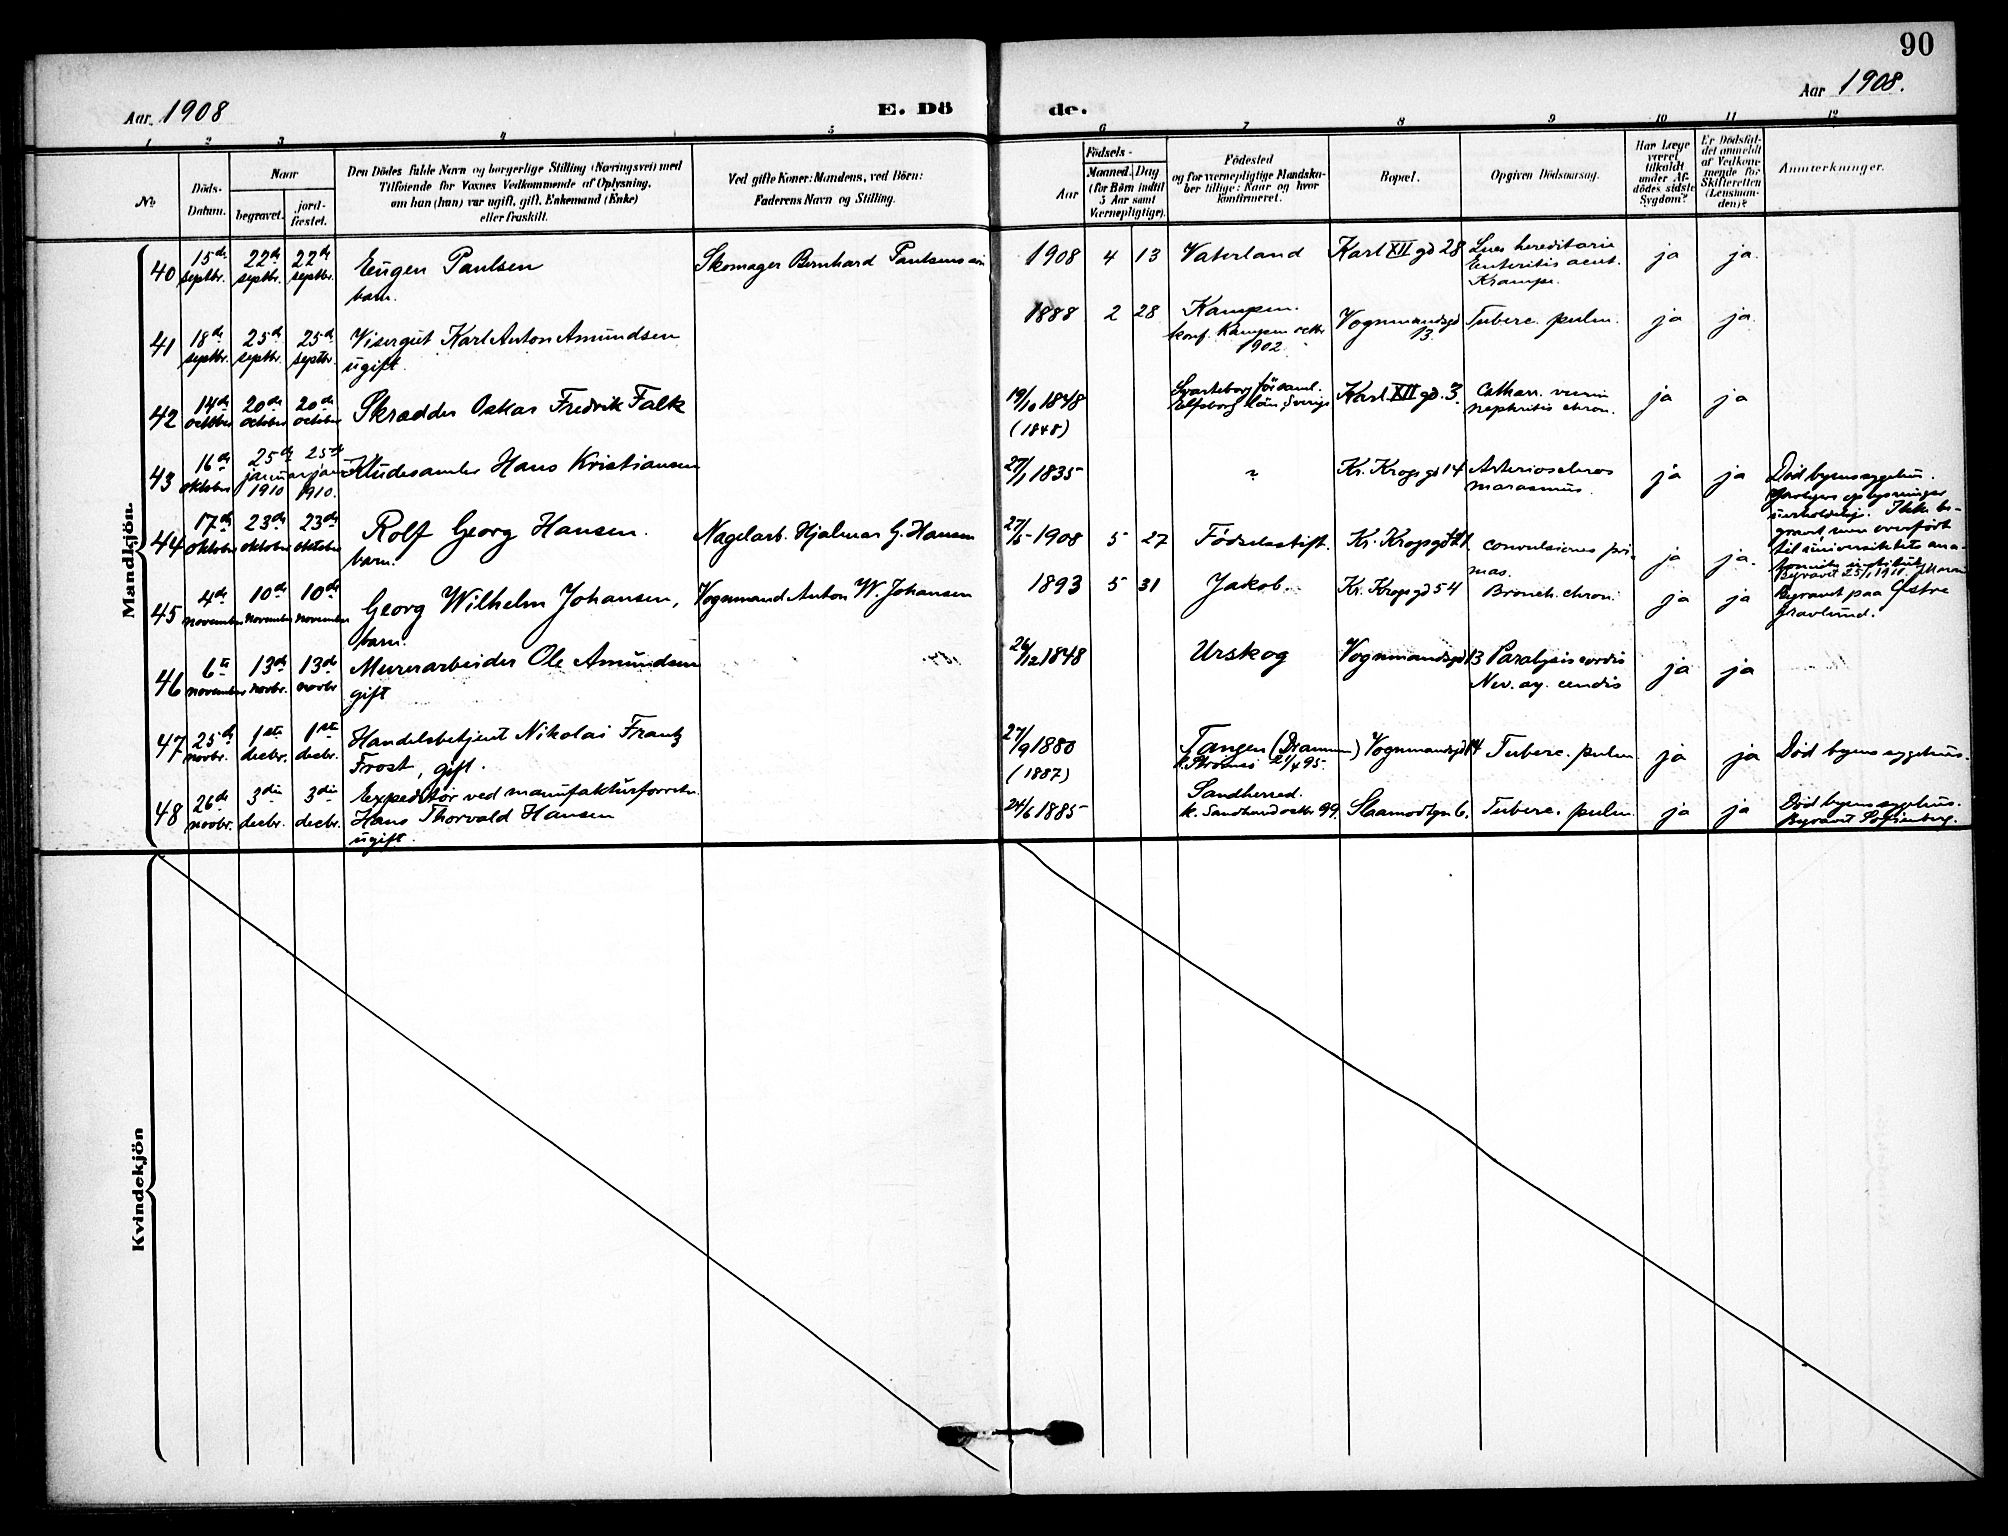 90
Aar 1908
E. Dö
de.
Aar 1908.
1 2 3 4 5 6 7 8 9 10 11 12
No
Döds-
Datum.
Naar
begravet.
jord-
fæstet.
Den Dödes fulde Navn og borgerlige Stilling (Næringsvei) med
Tilføiende for Voxnes Vedkommende af Oplysning,
om han (hun) var ugift, gift, Enkemand (Enke)
eller fraskilt.
Ved gifte Koner: Mandens, ved Börn:
Faderens Navn og Stilling.
Födsels-
Aar
Maaned. Dag
(for Börn indtil
5 Aar samt
Værnepligtige).
Födested
og for værnepligtige Mandska-
ber tillige: Naar og hvor
konfirmeret.
Bopæl.
Opgiven Dödsaarsag.
Har Læge
været
tilkaldt
under Af-
dödes sidste
Sygdom?
Er Dödsfal-
det anmeldt
af Vedkom-
mende for
Skifteretten
(Lensman-
den)?
Anmærkninger.
Mandkjön.
40
15de septbr.
22de septbr.
22de septbr.
Eugen Paulsen
barn.
Skomager Bernhard Paulsens
1908 4 13
Vaterland
Karl XII gd 28
Lues hereditarie
Enteritis acut.
Krampe.
ja ja.
41
18de septbr.
25de septbr.
25de septbr.
Visergut Karl Anton Amundsen
ugift.
1888 2 28
Kampen.
konf. Kampen octbr
1902.
Vognmandsgd
13.
Tuberc. pulm.
ja ja.
42
14de oktober
20de october
20de october
Skrædder Oskar Fredrik Falk
19/10 1848
(1848)
Svarteborg församl.
Elfsborg län, Sverige
Karl XII gd. 3.
Cathar.
nephritis chron.
ja ja
43
16de oktober
25de januar
1910
25de januar
1910.
Kludesamler Hans Kristiansen
27/1 1835
"
Kr. Krogs gd 14
Arterioscleros
marasmus.
ja ja
Død byens sygehus.
oplysninger
Ikke be-
gravet, men overført
til universitetets ana-
tomiske institut.
Begravet 25/1 1910.
44
17de oktober
23de oktober
23de oktober
Rolf Georg Hansen.
barn.
Nagelarb. Hjalmar G. Hansen
27/5 1908 5 27
Fødselsstift.
Kr. Krogsgd
convulsiones pri-
mas.
ja ja.
45
4de november
10de november
10de november
Georg Wilhelm Johansen,
barn.
Vognmand Anton W. Johansen
1893 5 31
Jakob.
Kr. Krogsgd 54
Bronch. chron.
ja ja
Begravet paa Østre
gravlund.
46
6te november
13de novbr.
13de novbr
Murerarbeider Ole Amundsen
gift
26/12 1848
Urskog
Vognmandsgd 13
Paralysis cordis
ja ja
47
25de novbr.
1ste decbr.
1ste decbr.
Handelsbetjent Nikolai Frantz
Frost, gift.
27/9 1880
(1887)
Tangen (Drammen)
k. Strømsø 21/4 95.
Vognmandsgd 14
Tuberc. pulm.
ja ja
Død byens sygehus.
48
26de novbr.
3die decbr.
3die decbr.
Expeditør ved manufakturforretn.
Hans Thorvald Hansen
ugift.
24/6 1885
Sandherred.
k. Sandherred octbr 99.
Slaamodtgn 6.
Tuberc. pulm.
ja ja
Død byens sygehus.
Begravet Sofienberg.
Kvindekjön